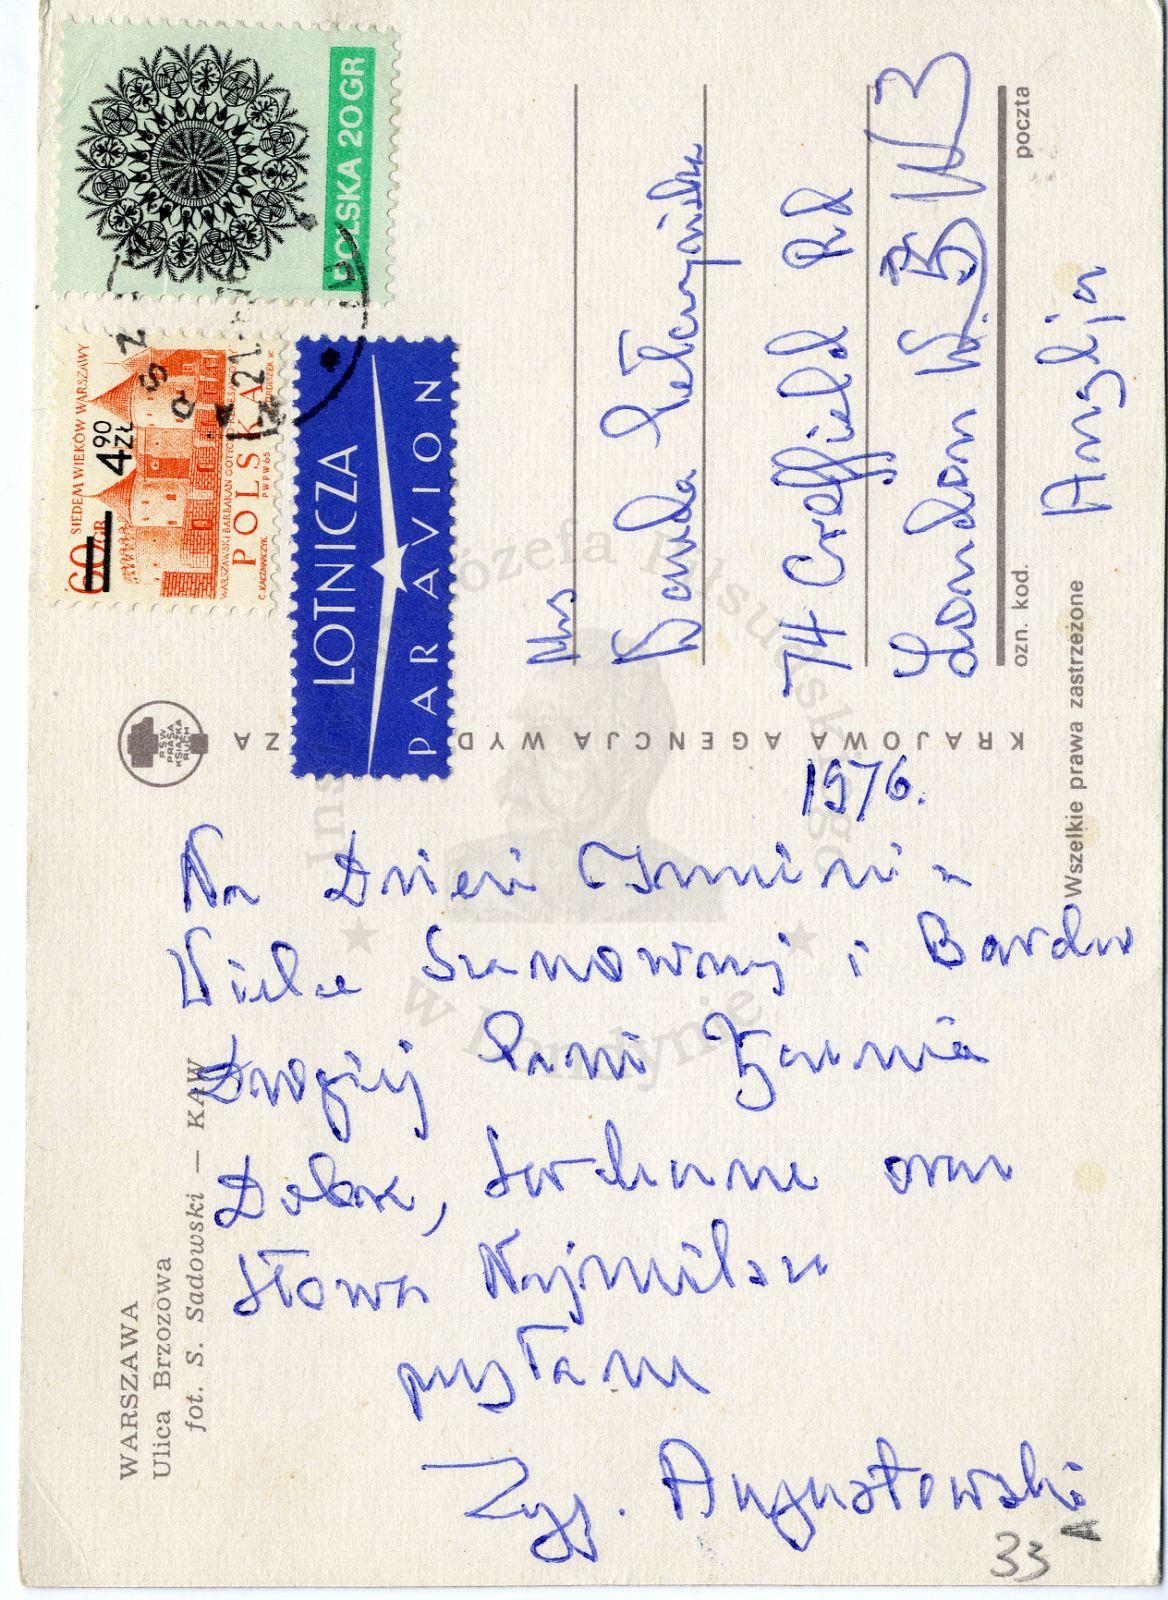 WARSZAWA
Ulica Brzozowa
fot. S. Sadowski — KAW
1976.
Na Dzień Imienin
Wielce Szanownej i Bardzo
Drogiej Pani
Dobre, Serdeczne oraz
Słowa Najmilsze
przesłane
Zyg. Augustowski
33
PSW
PRASA
KSIĄŻKA
RUCH
KRAJOWA AGENCJA WYD ZA
60 GR
SIEDEM WIEKÓW WARSZAWY
4 90 ZŁ
WARSZAWSKI BARBAKAN GOTYCKO-RENESANSOWY
POLSKA
C. KACZMARCZYK PWPW 65
POLSKA 20 GR
LOTNICZA
PAR AVION
Mrs
Wanda Pełczyńska
74 Creffield Rd
London W.3 W3
Anglia
ozn. kod.
poczta
Wszelkie prawa zastrzeżone
Instytut Józefa Piłsudskiego
w Londynie